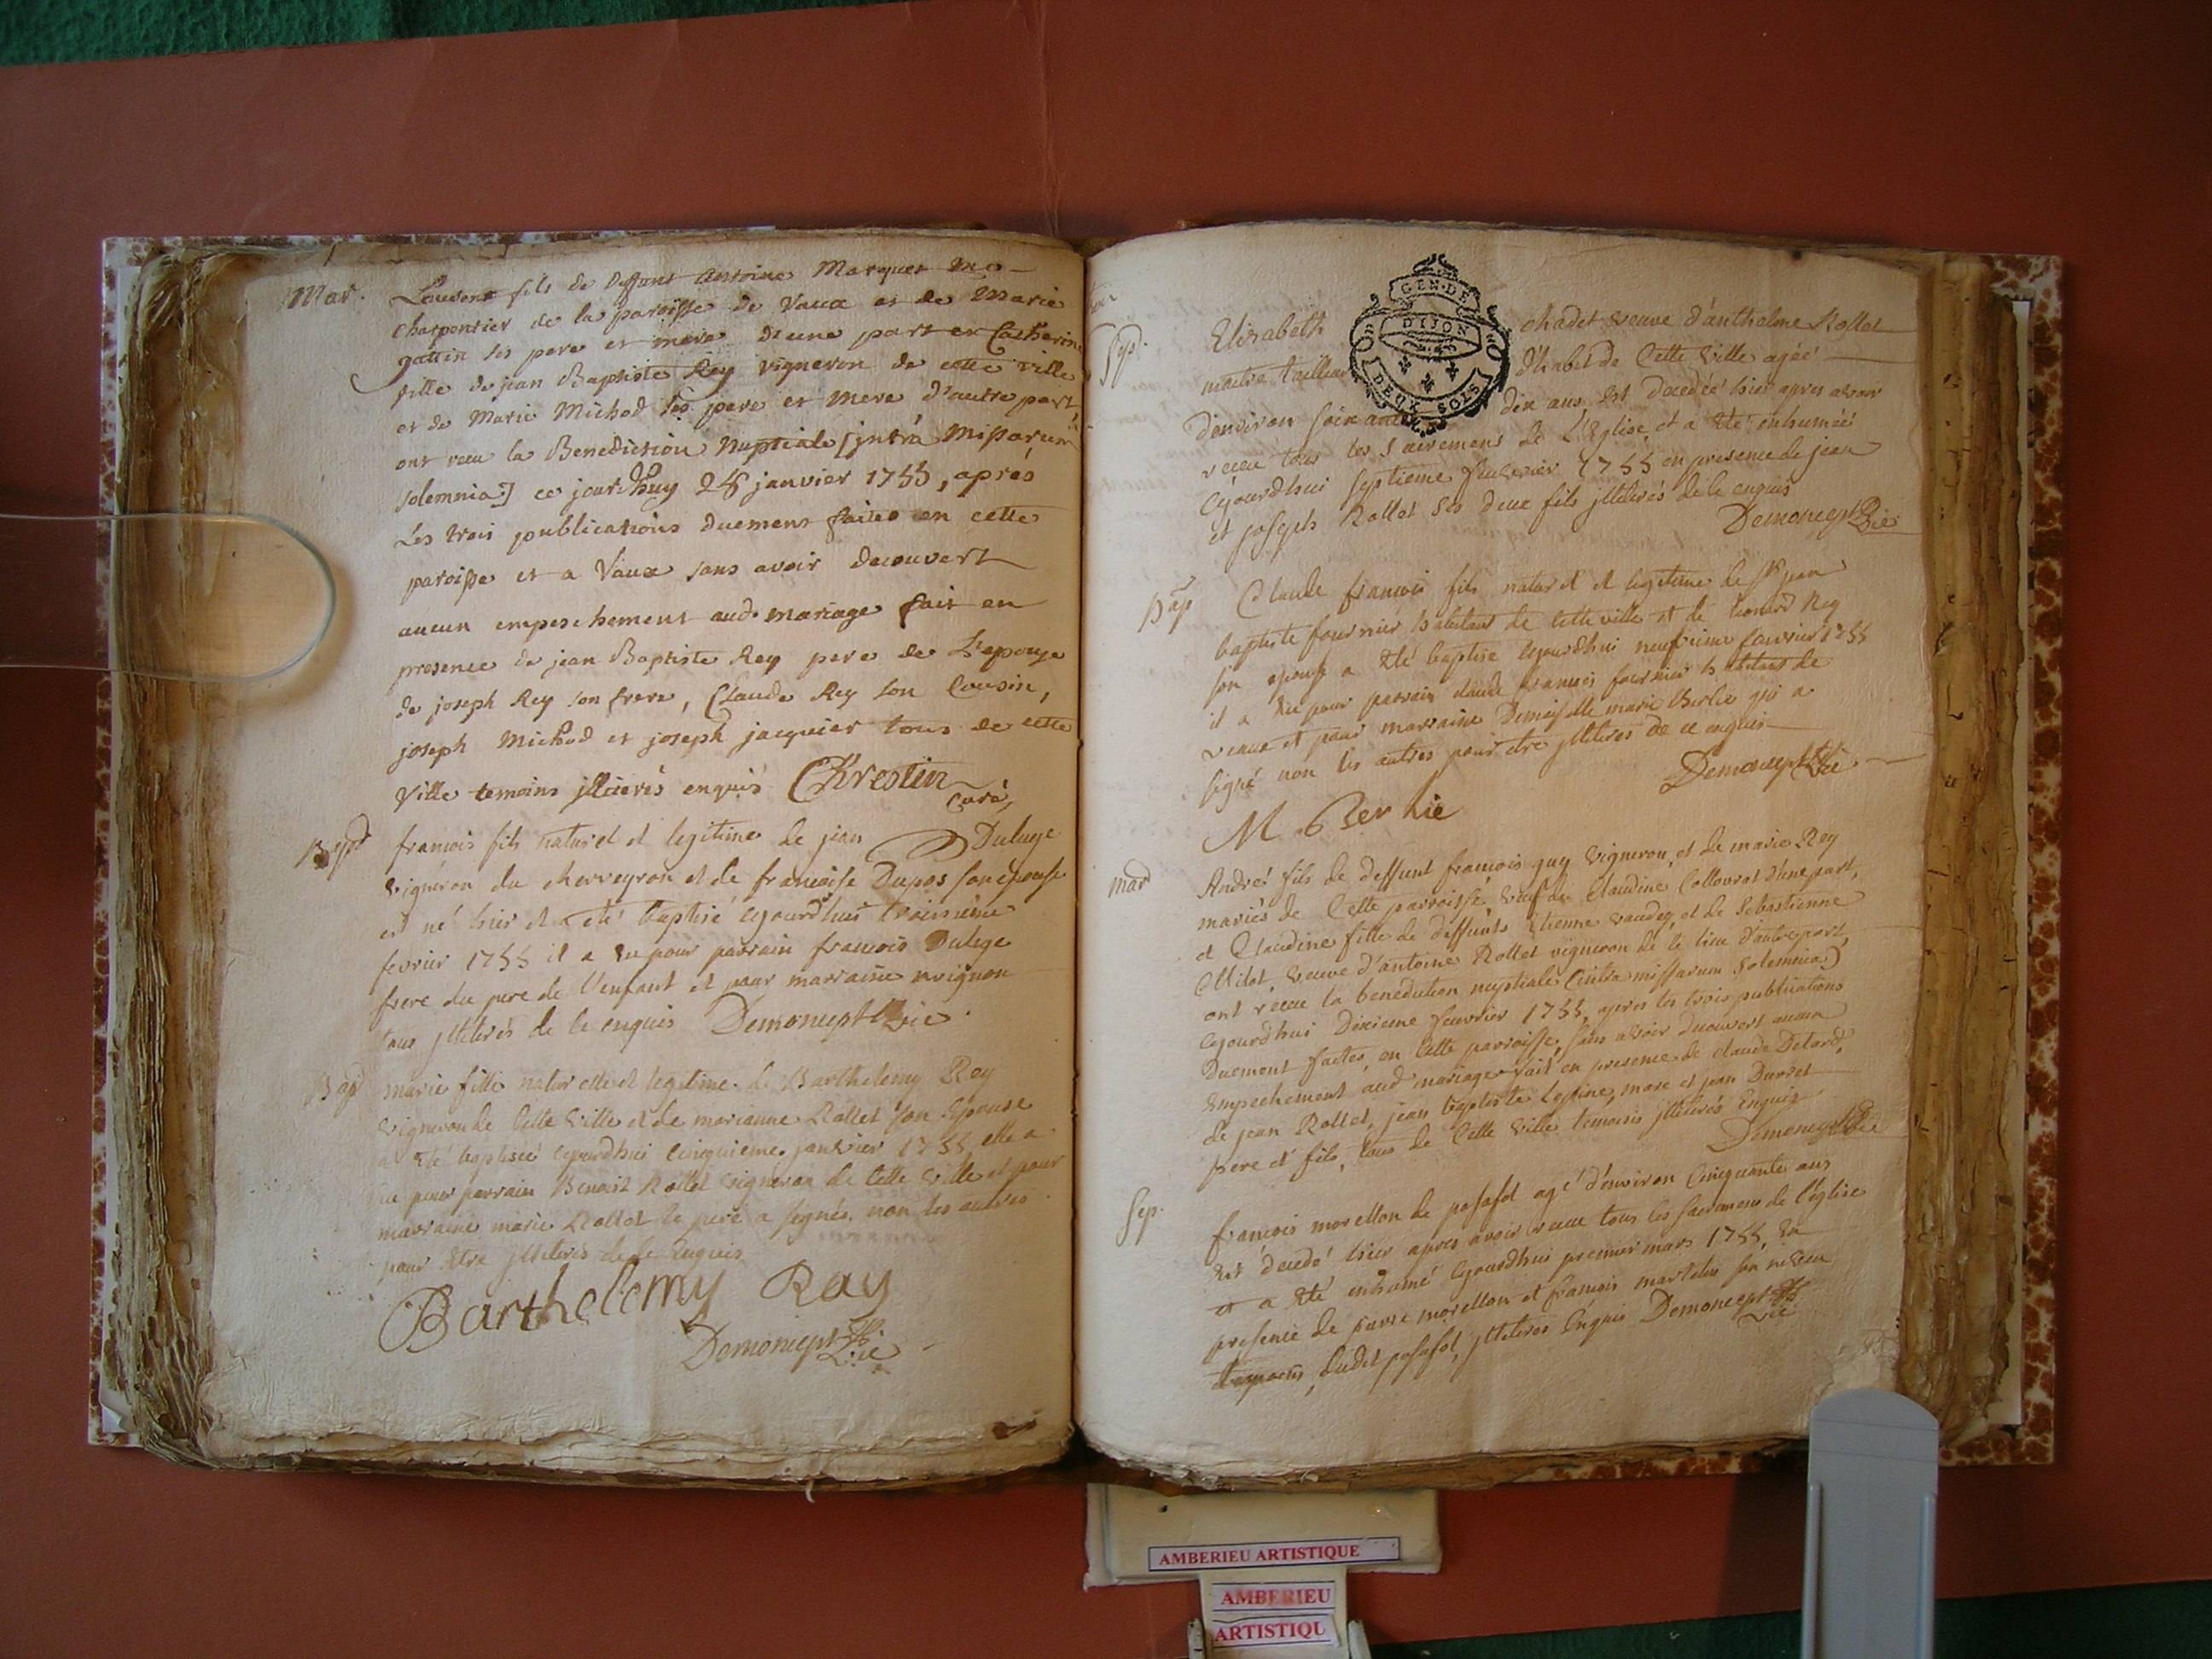 Mar.
Laurent fils de deffunt Antoine Marquet me
charpentier de la paroisse de Vaux et de Marie
gattin ses pere et mere d'une part et Catherine
fille de jean Baptiste Rey vigneron de cette ville
et de Marie Michod ses pere et mere d'autre part,
ont recu la Benediction Nuptiale [intrà Missarum
solemnia] ce jourd'huy 28 janvier 1755, aprés
les trois publications duement faites en cette
paroisse et a Vaux sans avoir decouvert
aucun empeschement aud. mariage fait en
presence de jean Baptiste Rey pere de L'epouse
de joseph Rey son frere, Claude Rey son Cousin,
joseph Michod et joseph jacquier tous de cette
ville temoins jlliterés enquis Chrestin
Curé,
Bapt
francois fils naturel et legitime de jean Duluge
vigneron du cherveyron et de francoise Dupas son epouse
est né hier et a eté baptisé cejourd'hui troisieme
fevrier 1755 il a eu pour parrain francois Duluge
frere du pere de l'enfant et pour marraine
tous jlliterés de ce enquis Demoncept Vic.
Bap
marie fille naturelle et legitime de Barthelemy Rey
vigneron de cette ville et de marianne Rollet son Epouse
a eté baptisée cejourd'hui cinquieme janvier 1755, elle a
eu pour parrain Benoit Rollet vigneron de cette ville et pour
marraine marie Rollet le pere a signé, non les autres
pour etre jlliterés de ce Enquis
Barthelemy Ray
Demoncept Vic
GEN. DE
DIJON
DEUX SOLS
Sep.
Elisabeth chadet veuve d'anthelme Rollet
maitre tailleur d'habit de Cette ville agée
d'environ soixante dix ans est decedée hier apres avoir
recu tous les sacremens de L'Eglise et a eté inhumée
cejourd'hui septieme feuvrier 1755 en presence de jean
et joseph Rollet ses deux fils jlliterés de ce enquis
Demoncept Vic
Bap
Claude francois fils naturel et legitime de Sr jean
baptiste fournier habitant de cette ville et de Rey
son epouse a eté baptisé cejourd'hui neufvieme feuvrier 1755
il a eu pour parrain claude francois fournier habitant de
vaux et pour marraine Demoiselle marie Berlie qui a
signé non les autres pour etre jlliterés de ce enquis
Demoncept Vic
M Berlie
mar
André fils de deffunt francois guy vigneron, et de marie Rey
mariés de Cette parroisse, veuf de Claudine Collovrat d'une part,
et Claudine fille de deffunts Etienne vaudey, et de Sebastienne
Milet, veuve d'antoine Rollet vigneron de ce lieu d'autre part,
ont recu la benediction nuptiale (intra missarum Solemnia)
cejourd'hui Dixieme feuvrier 1755, apres les trois publications
Duement faites, en Cette parroisse, sans avoir decouvert aucun
Empechement aud mariage fait en presence de claude Detard,
de jean Rollet, jean baptiste Lespine, marc et jean Durret
pere et fils, tous de Cette ville temoins jlliterés Enquis
Demoncept Vic
Sep.
francois morellon de posafol agé d'environ Cinquante ans
est decedé hier apres avoir recu tous les sacremens de l'église
et a eté inhumé cejourd'hui premier mars 1755, en
presence de pierre morellon et francois martelin son neveu
dudit posafol, jlliteres Enquis Demoncept
Vic
AMBERIEU ARTISTIQUE
AMBERIEU
ARTISTIQU